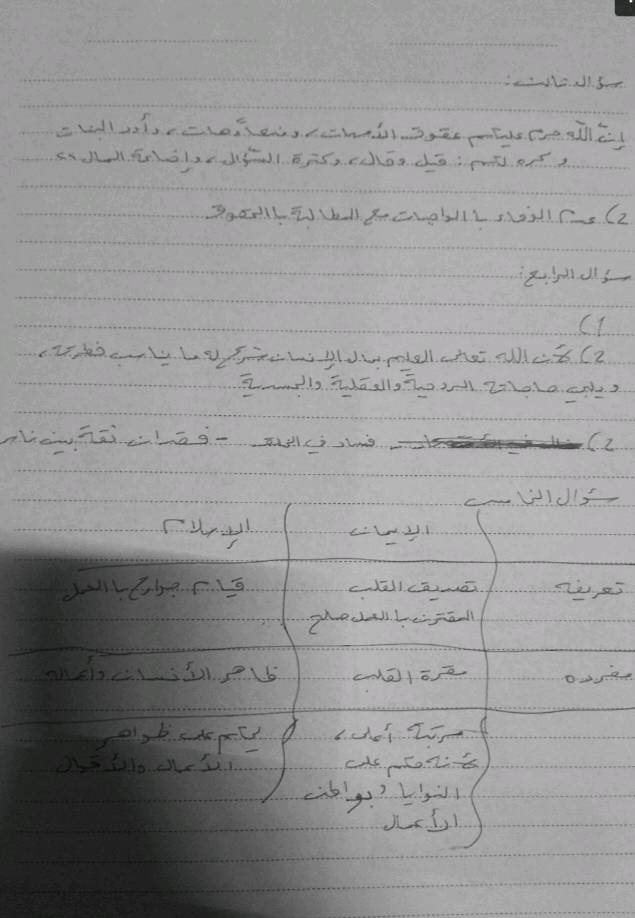 سؤال ثالث:
إنّ الله حرم عليكم عقوق الأمهات، ومنعاً وهات، وأد البنات
وكره لكم: قيل وقال، وكثرة السؤال، وإضاعة المال"
2) عدم الوفاء بالواجبات مع المطالبة بالحقوق
سؤال الرابع:
1)
2) لأن الله تعالى العليم بحال الإنسان شرع له ما يناسب فطرته،
ويلبي حاجاته الروحية والعقلية والجسدية
2) فساد في - فقدان ثقة بين
سؤال الخامس
الإيمان الإسلام
تعريفه تصديق القلب قيام جوارح بالعمل
المقترن بالعمل صلح
مفرده مقرة القلب ظاهر الأنسان وأعماله
مرتبة أعلى، يحكم على ظواهر
لأنه حكم على الأعمال والأقوال
النوايا وبواطن
الأعمال